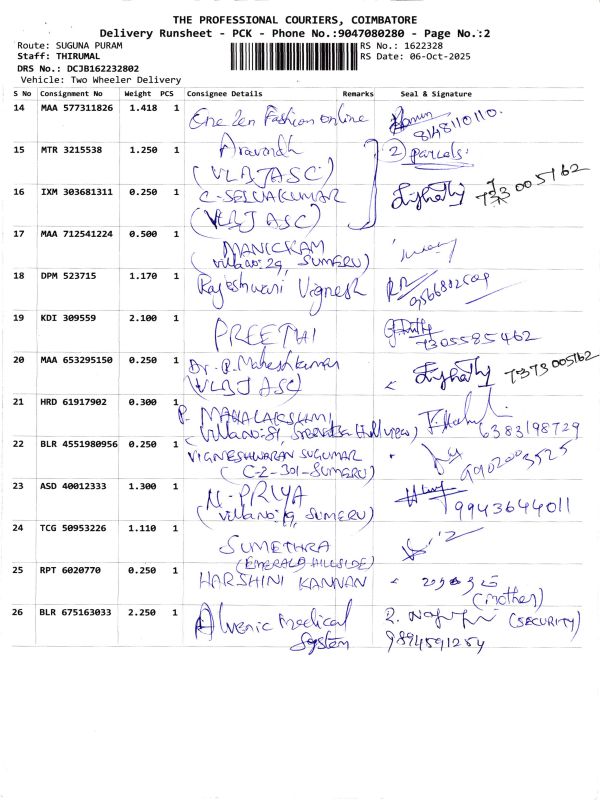 THE PROFESSIONAL COURIERS, COIMBATORE
Delivery Runsheet - PCK - Phone No.:9047080280 - Page No.:2
Route: SUGUNA PURAM
RS No.: 1622328
Staff: THIRUMAL
RS Date: 06-Oct-2025
DRS No.: DCJB162232802
Vehicle: Two Wheeler Delivery
S No Consignment No Weight PCS Consignee Details Remarks Seal & Signature
14 MAA 577311826 1.418 1 One Zen Fashion online
8148110110.
15 MTR 3215538 1.250 1 Aravindh 2 parcels.
(VLBJASC)
16 IXM 303681311 0.250 1 C-SELVAKUMAR 7373005162
(VLBJASC)
17 MAA 712541224 0.500 1 MANICKAM
(villano:29, SUMERU)
18 DPM 523715 1.170 1 Rajeshwari Vignesh
19 KDI 309559 2.100 1 PREETHI
7305585462
20 MAA 653295150 0.250 1 Dr.P.Maheshkumar 7373005162
(VLBJASC)
21 HRD 61917902 0.300 1 P. MAHALAKSHMI
(villano:81, 6383198729
22 BLR 4551980956 0.250 1 VIGNESHWARAN SUGUMAR
(C-2-301-SUMERU)
23 ASD 40012333 1.300 1 N-PRIYA
(villa no:19, SUMERU) 9943644011
24 TCG 50953226 1.110 1 SUMETHRA
(EMERALD HILLSIDE)
25 RPT 6020770 0.250 1 HARSHINI KANNAN
(mother)
26 BLR 675163033 2.250 1 Alvenic Medical (SECURITY)
System 9894591254